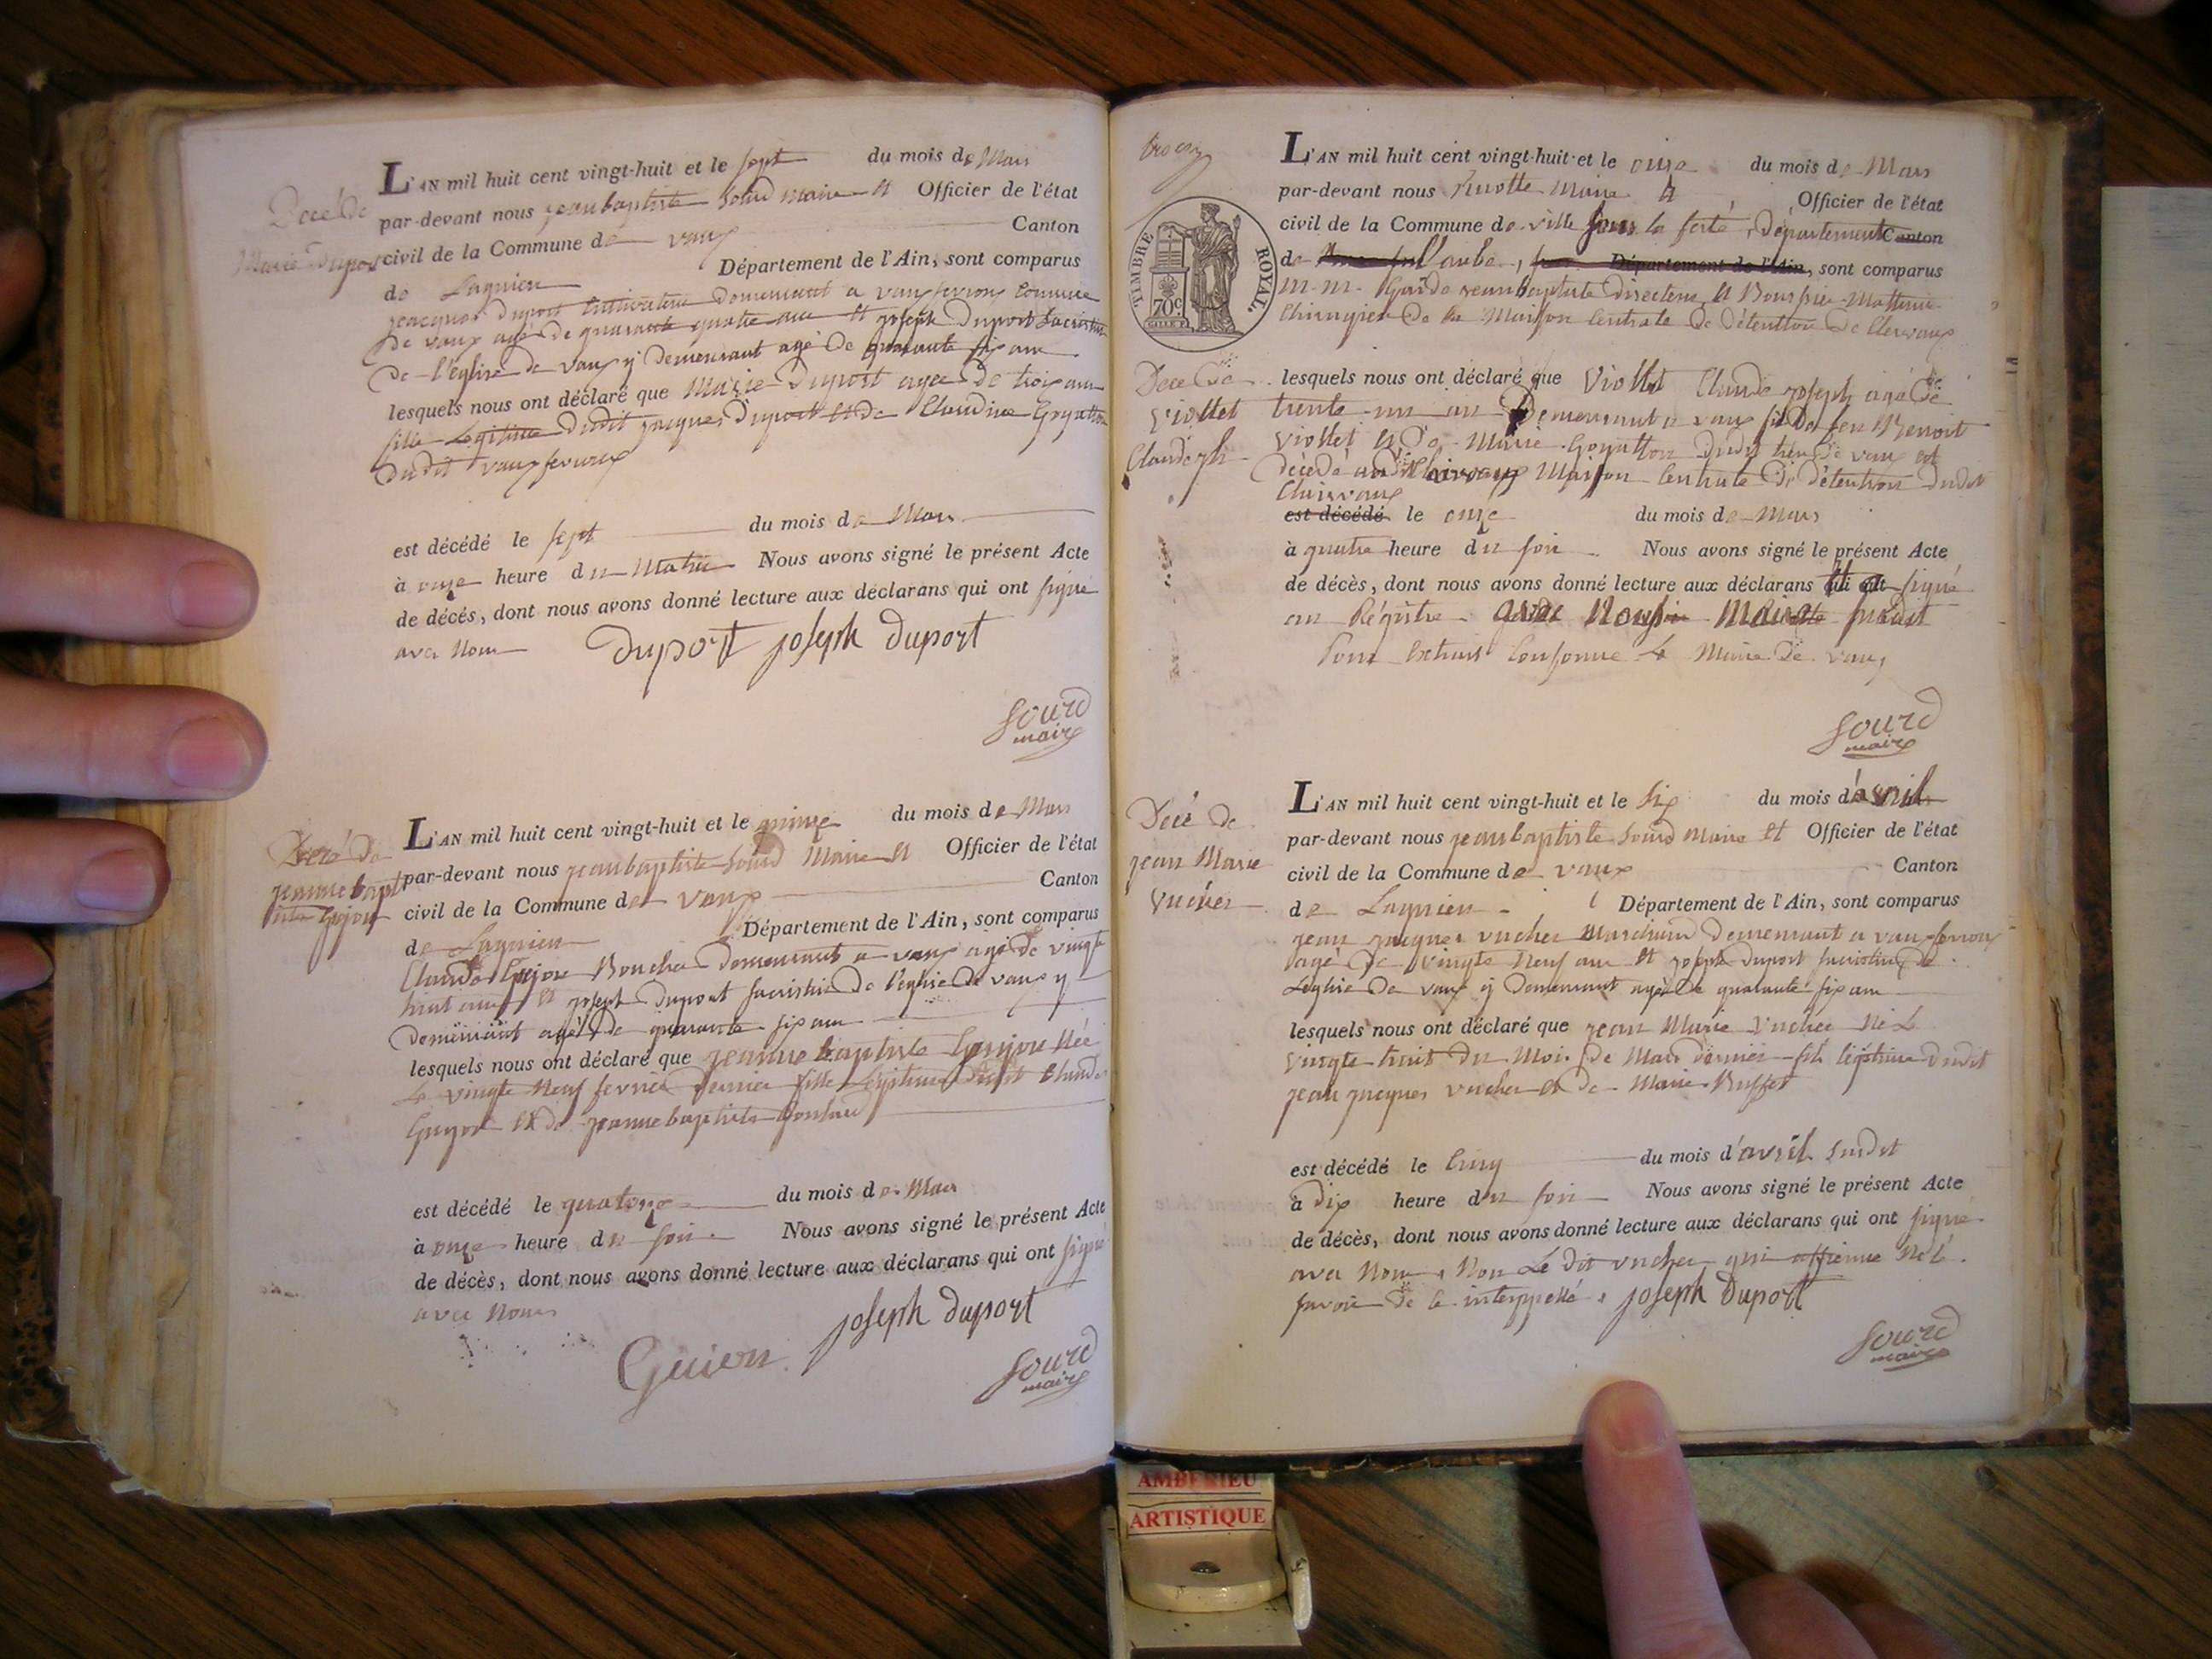 Décé de
Marie Duport
L'AN mil huit cent vingt-huit et le sept du mois de Mars
par-devant nous jean baptiste Sourd Maire et Officier de l'état
civil de la Commune de vaux Canton
de Lagnieu Département de l'Ain, sont comparus
jacques Duport Cultivateur Demeurant a vaux fevroux Commune
De vaux agé De quarante quatre ans Et joseph Duport Sacristin
De l'église de vaux y Demeurant agé De quarante six ans
lesquels nous ont déclaré que Marie Duport agée De trois ans
fille Legitime Dudit jacques Duport Et De Claudine Goyatton
Dudit vaux fevroux
est décédé le sept du mois de Mars
à onze heure du Matin Nous avons signé le présent Acte
de décés, dont nous avons donné lecture aux déclarans qui ont signé
avec Nous Duport joseph duport
Sourd
maire
Décé De
jeanne bapt
L'AN mil huit cent vingt-huit et le quinze du mois de Mars
par-devant nous jean baptiste Sourd Maire Et Officier de l'état
civil de la Commune de vaux Canton
de Lagnieu Département de l'Ain, sont comparus
Claude Boucher Demeurant a vaux agé de vingt
huit ans Et joseph Duport Sacristin De l'église De vaux y
Demeurant agé De quarante six ans
lesquels nous ont déclaré que jeanne baptiste Née
Le vingte Neuf fevrier Dernier fille Legitime Dudit Claude
Et de jeanne baptiste
est décédé le quatorze du mois de Mars
à onze heure du soir Nous avons signé le présent Acte
de décés, dont nous avons donné lecture aux déclarans qui ont signé
avec Nous
joseph duport
Guion
Sourd
maire
TIMBRE ROYAL.
70c.
Décé De
Viollet
Claude jph
L'AN mil huit cent vingt-huit et le onze du mois de Mars
par-devant nous Maire Et Officier de l'état
civil de la Commune de ville sous la ferté, Département Canton
de l'aube, Département de l'Ain, sont comparus
M.M. jean baptiste Directeur, Et
Chirurgien De la Maison Centrale De Détention De Clervaux
lesquels nous ont déclaré que Viollet Claude joseph agé De
trente un an Demeurant a vaux fils De feu Benoit
Viollet Et De Marie Goyatton Dudit lieu De vaux est
Décédé audit Clairvaux Maison Centrale De Détention Dudit
Clairvaux
est décédé le onze du mois de Mars
à quatre heure du soir Nous avons signé le présent Acte
de décès, dont nous avons donné lecture aux déclarans signé
au Régistre Maire
Pour Extrait Conforme Le Maire De vaux
Sourd
maire
Décé De
jean Marie
Vucher
L'AN mil huit cent vingt-huit et le six du mois d'avril
par-devant nous jean baptiste Sourd Maire Et Officier de l'état
civil de la Commune de vaux Canton
de Lagnieu Département de l'Ain, sont comparus
jean jacques vucher Marchand Demeurant a vaux fevroux
agé De vingte Neuf ans Et joseph Duport Sacristin De
Léglise De vaux y Demeurant agé De quarante six ans
lesquels nous ont déclaré que jean Marie Vucher Né Le
vingte huit Du Mois De Mars Dernier fils légitime Dudit
jean jacques vucher et De Marie Buffet
est décédé le Cinq du mois d'avril susdit
à dix heure du soir Nous avons signé le présent Acte
de décès, dont nous avons donné lecture aux déclarans qui ont signé
avec Nous, Non Le Dit vucher qui affirme Ne le
savoir De ce interppellé, joseph Duport
Sourd
maire
AMBERIEU
ARTISTIQUE